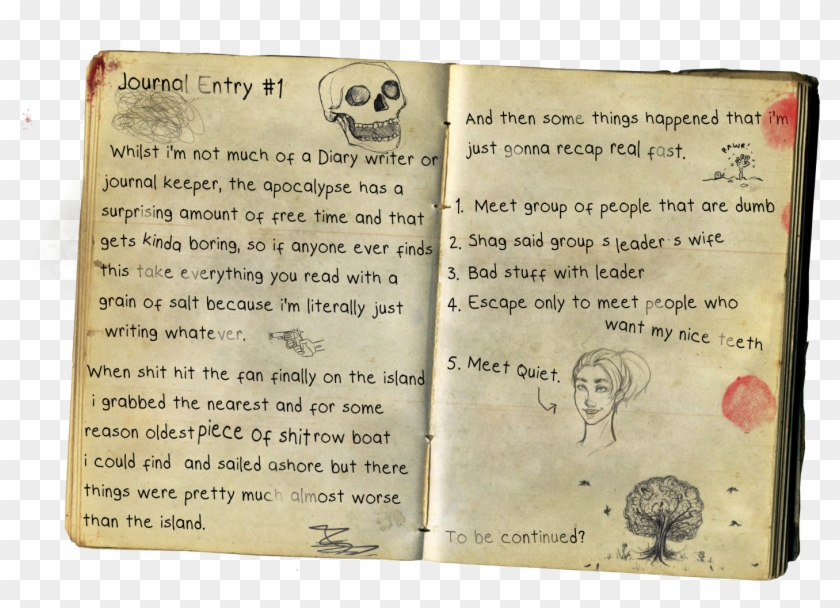 Journal Entry #1
Whilst i'm not much of a Diary writer or
journal keeper, the apocalypse has a
surprising amount of free time and that
gets kinda boring, so if anyone ever finds
this take everything you read with a
grain of salt because i'm literally just
writing whatever.
When shit hit the fan finally on the island
i grabbed the nearest and for some
reason oldest piece of shit row boat
i could find and sailed ashore but there
things were pretty much almost worse
than the island.
And then some things happened that i'm
just gonna recap real fast.
RAWR!
1. Meet group of people that are dumb
2. Shag said group s leader s wife
3. Bad stuff with leader
4. Escape only to meet people who
want my nice teeth
5. Meet Quiet.
To be continued?